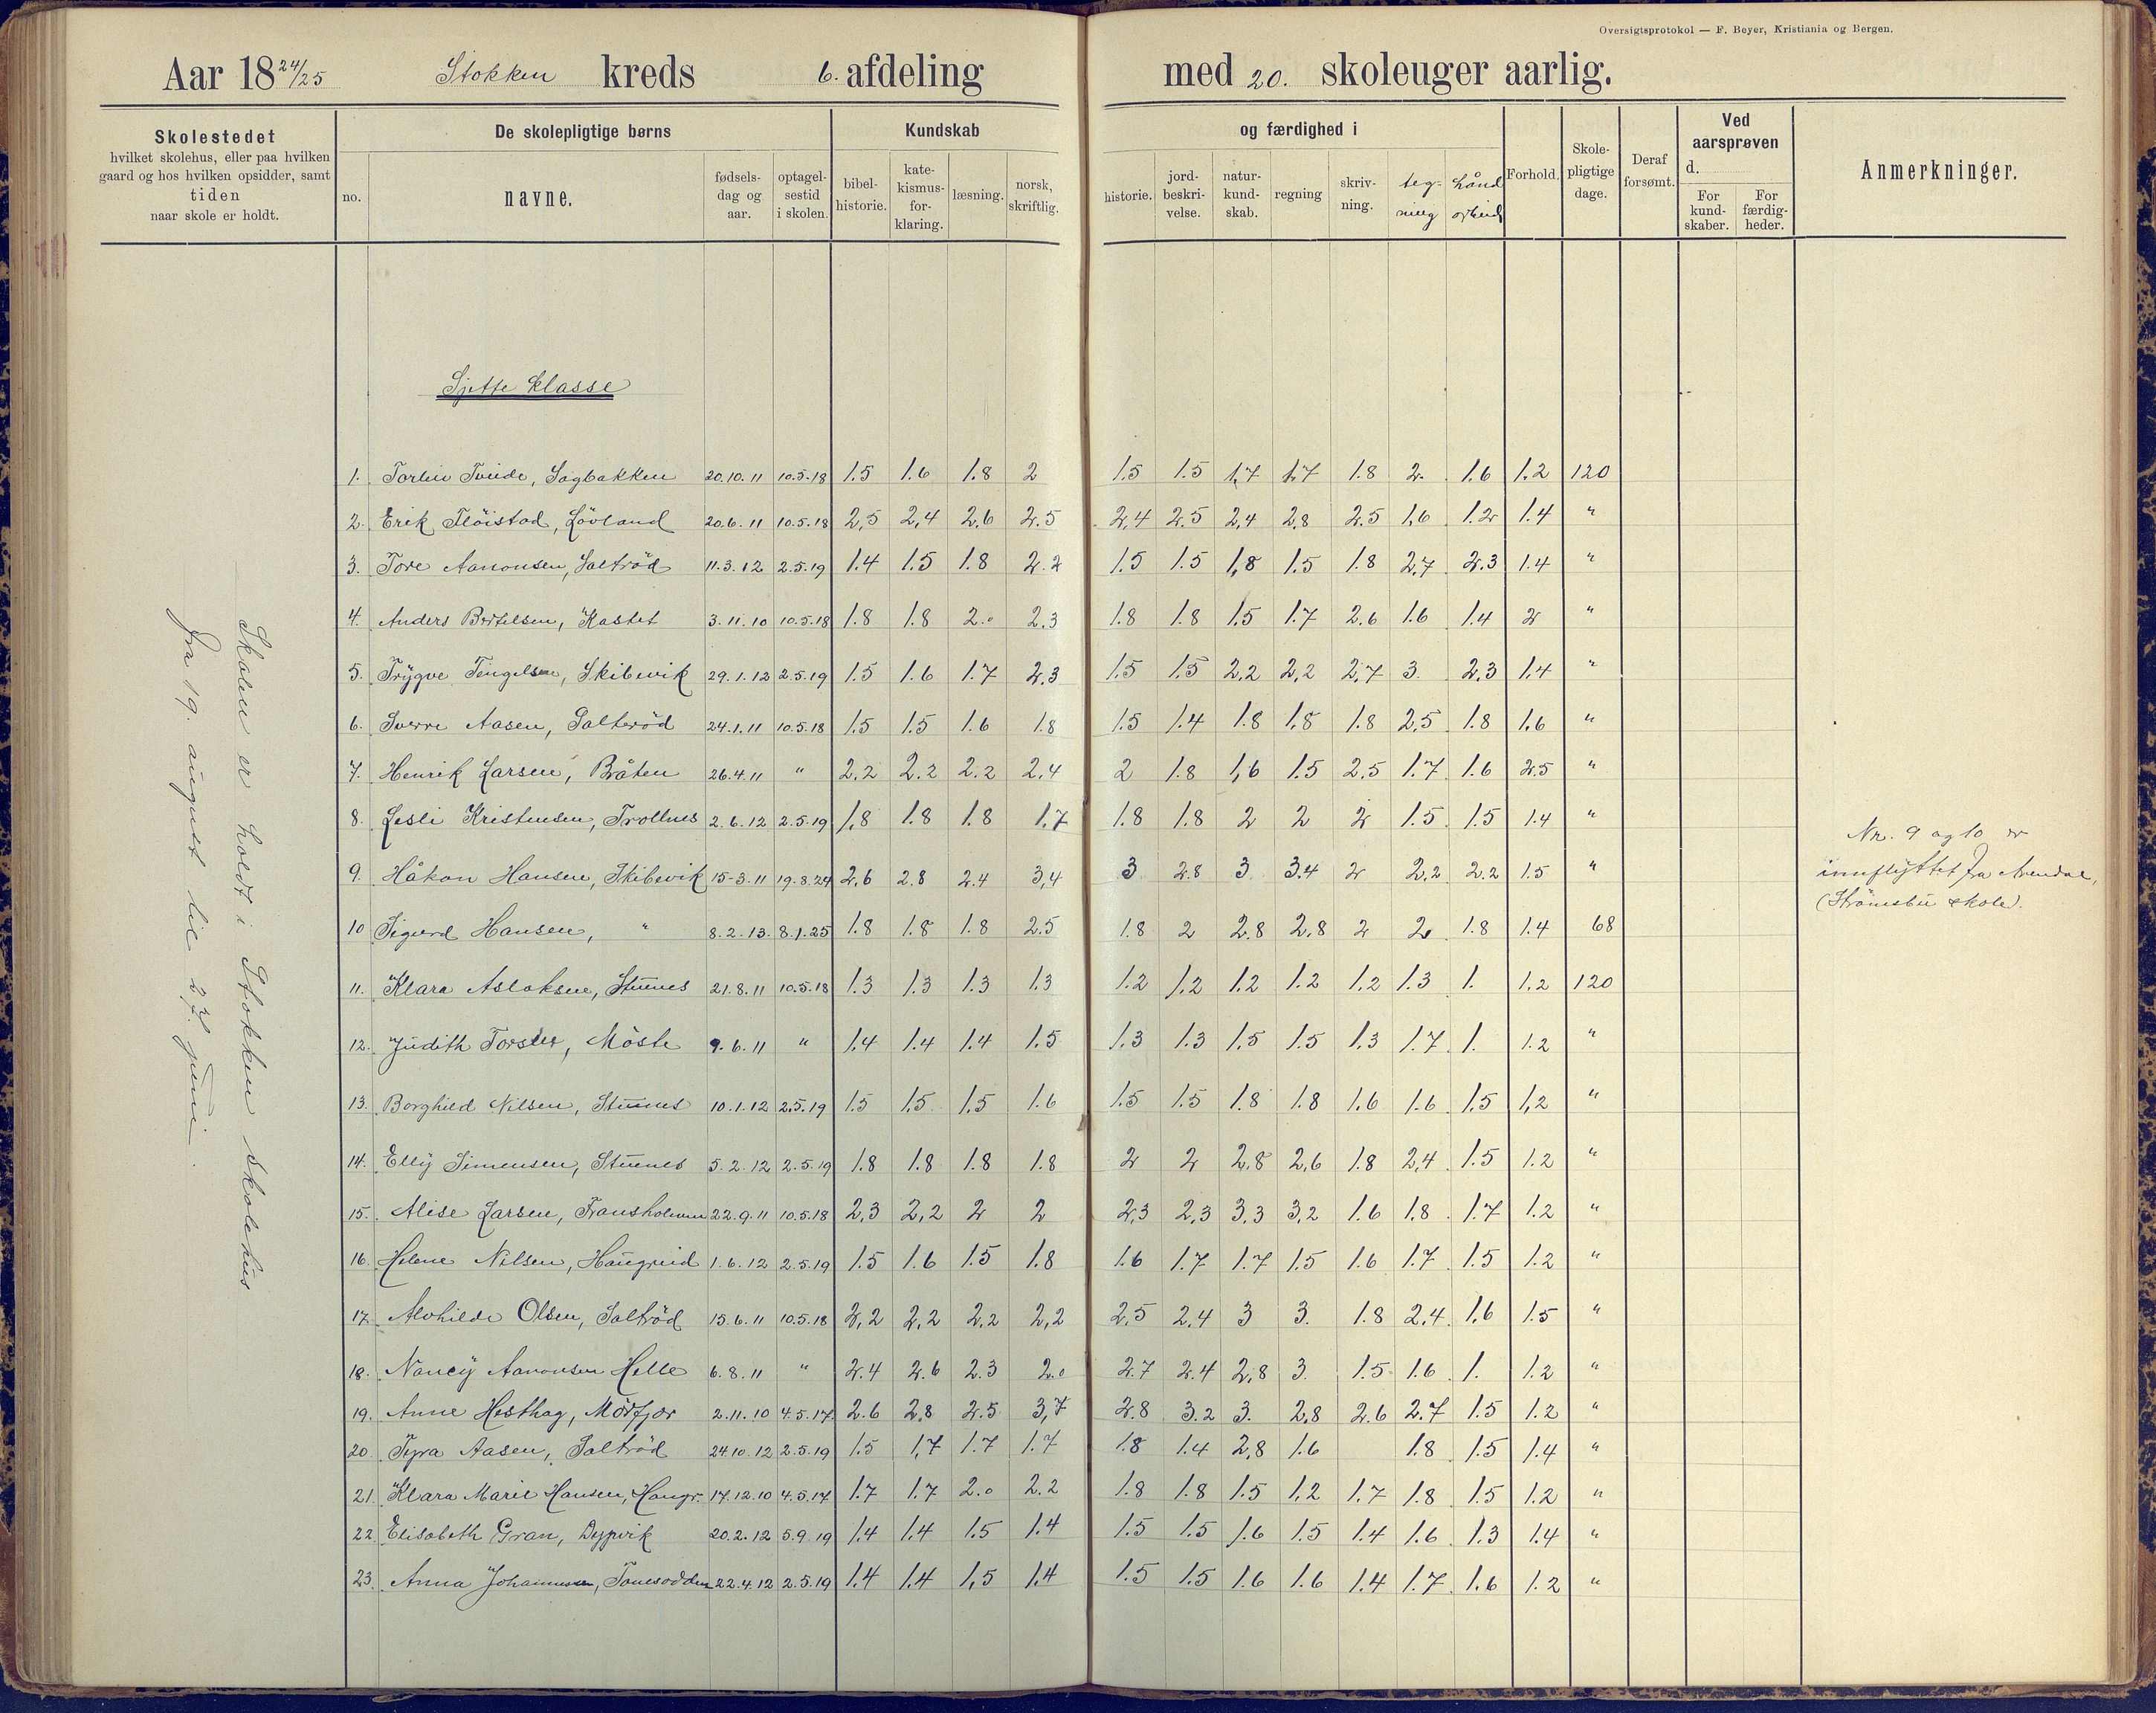 Oversigtsprotokol — F. Beyer, Kristiania og Bergen.
Aar 18 24/25 Stokken kreds 6. afdeling med 20. skoleuger aarlig.
Skolestedet
hvilket skolehus, eller paa hvilken
gaard og hos hvilken opsidder, samt
tiden
naar skole er holdt.
De skolepligtige børns
no. navne. fødsels-dag og aar. optagel-sestid i skolen.
Kundskab og færdighed i
bibel-historie. kate-kismus-for-klaring. læsning. norsk, skriftlig. historie. jord-beskri-velse. natur-kund-skab. regning skriv-ning. teg-ning hånd arbeid
Forhold. Skole-pligtige dage. Deraf forsømt.
Ved aarsprøven d.
For kund-skaber. For færdig-heder.
Anmerkninger.
Sjette klasse
1. Torbin Tveide, Sagbakken 20.10.11 10.5.18 1.5 1.6 1.8 2 1.5 1.5 1,7 1.7 1.8 2. 1.6 1.2 120
2. Erik Fløistad, Lövland 20.6.11 10.5.18 2,5 2,4 2,6 2.5 2,4 2.5 2,4 2.8 2.5 1,6 1.2 1.4 "
3. Tore Aanonsen, Saltröd 11.3.12 2.5.19 1.4 1.5 1.8 2.2 1.5 1.5 1,8 1.5 1.8 2,7 2.3 1.4 "
4. Anders Bertelsen, Kastet 3.11.10 10.5.18 1.8 1.8 2.0 2.3 1.8 1.8 1.5 1.7 2.6 1.6 1.4 2 "
5. Trygve Tengelsen, Skibevik 29.1.12 2.5.19 1.5 1.6 1.7 2.3 1.5 1.5 2,2 2,2 2,7 3. 2,3 1.4 "
6. Sverre Aasen, Salteröd 24.1.11 10.5.18 1.5 1.5 1.6 1.8 1.5 1.4 1.8 1,8 1.8 2,5 1.8 1,6 "
7. Henrik Larsen, Bråten 26.4.11 " 2,2 2.2 2.2 2,4 2 1.8 1,6 1.5 2.5 1.7 1.6 2.5 "
8. Lesli Kristensen, Trollnes 2.6.12 2.5.19 1,8 1.8 1.8 1.7 1.8 1.8 2 2 2 1.5 1.5 1.4 "
9. Håkon Hansen, Skibevik 15-3.11 19.8.24 2,6 2.8 2.4 3,4 3 2.8 3 3.4 2 2.2 2.2 1.5 "
10 Sigurd Hansen, " 8.2.13. 8.1.25 1.8 1.8 1.8 2.5 1.8 2 2.8 2,8 2 2 1.8 1.4 68
11. Klara Aslaksen, Stuenes 21.8.11 10.5.18 1.3 1.3 1.3 1.3 1.2 1.2 1.2 1.2 1,2 1.3 1. 1.2 120
12. Judith Torster, Möste 9.6.11 " 1.4 1.4 1.4 1.5 1.3 1.3 1.5 1.5 1.3 1.7 1. 1.2 "
13. Borghild Nilsen, Stuenes 10.1.12 2.5.19 1.5 1.5 1.5 1.6 1.5 1.5 1.8 1.8 1.6 1.6 1.5 1,2 "
14. Elly Simensen, Stuenes 5.2.12 2.5.19 1.8 1.8 1.8 1.8 2 2 2,8 2,6 1.8 2,4 1.5 1.2 "
15. Alise Larsen, Fransholmen 22.9.11 10.5.18 2,3 2,2 2 2 2,3 2,3 3,3 3,2 1.6 1.8 1.7 1.2 "
16. Helene Nilsen, Haugreid 1.6.12 2.5.19 1.5 1.6 1.5 1.8 1.6 1.7 1.7 1.5 1.6 1.7 1.5 1.2 "
17. Alvhilde Olsen, Saltröd 15.6.11 10.5.18 2,2 2,2 2,2 2,2 2,5 2,4 3 3. 1.8 2,4 1,6 1.5 "
18. Nancy Aanonsen Helle 6.8.11 " 2.4 2.6 2.3 2.0 2.7 2.4 2,8 3. 1.5 1.6 1. 1.2 "
19. Anne Hesthag, Mörfjær 2.11.10 4.5.17. 2.6 2,8 2.5 3,7 2.8 3.2 3. 2,8 2.6 2.7 1.5 1.2 "
20. Tyra Aasen, Saltröd 24.10.12 2.5.19 1.5 1,7 1.7 1.7 1.8 1.4 2,8 1.6 1.8 1.5 1.4 "
21. Klara Marie Hansen, Haugr. 17.12.10 4.5.17 1.7 1.7 2.0 2.2 1.8 1.8 1.5 1.2 1.7 1.8 1.5 1.2 "
22. Elisabeth Gran, Dypvik 20.2.12 5.9.19 1.4 1.4 1.5 1.4 1.5 1.5 1.6 1.5 1.4 1.6 1.3 1.4 "
23. Anna Johannesen, Tonesodden 22.4.12 2.5.19 1.4 1.4 1,5 1,4 1.5 1.5 1.6 1.6 1.4 1.7 1.6 1.2 "
Skolen er holdt i Stokken skolehus
fra 19. august til 27. juni.
Nr. 9 og 10 er
innflyttet fra Arendal,
(Strömsbu skole).